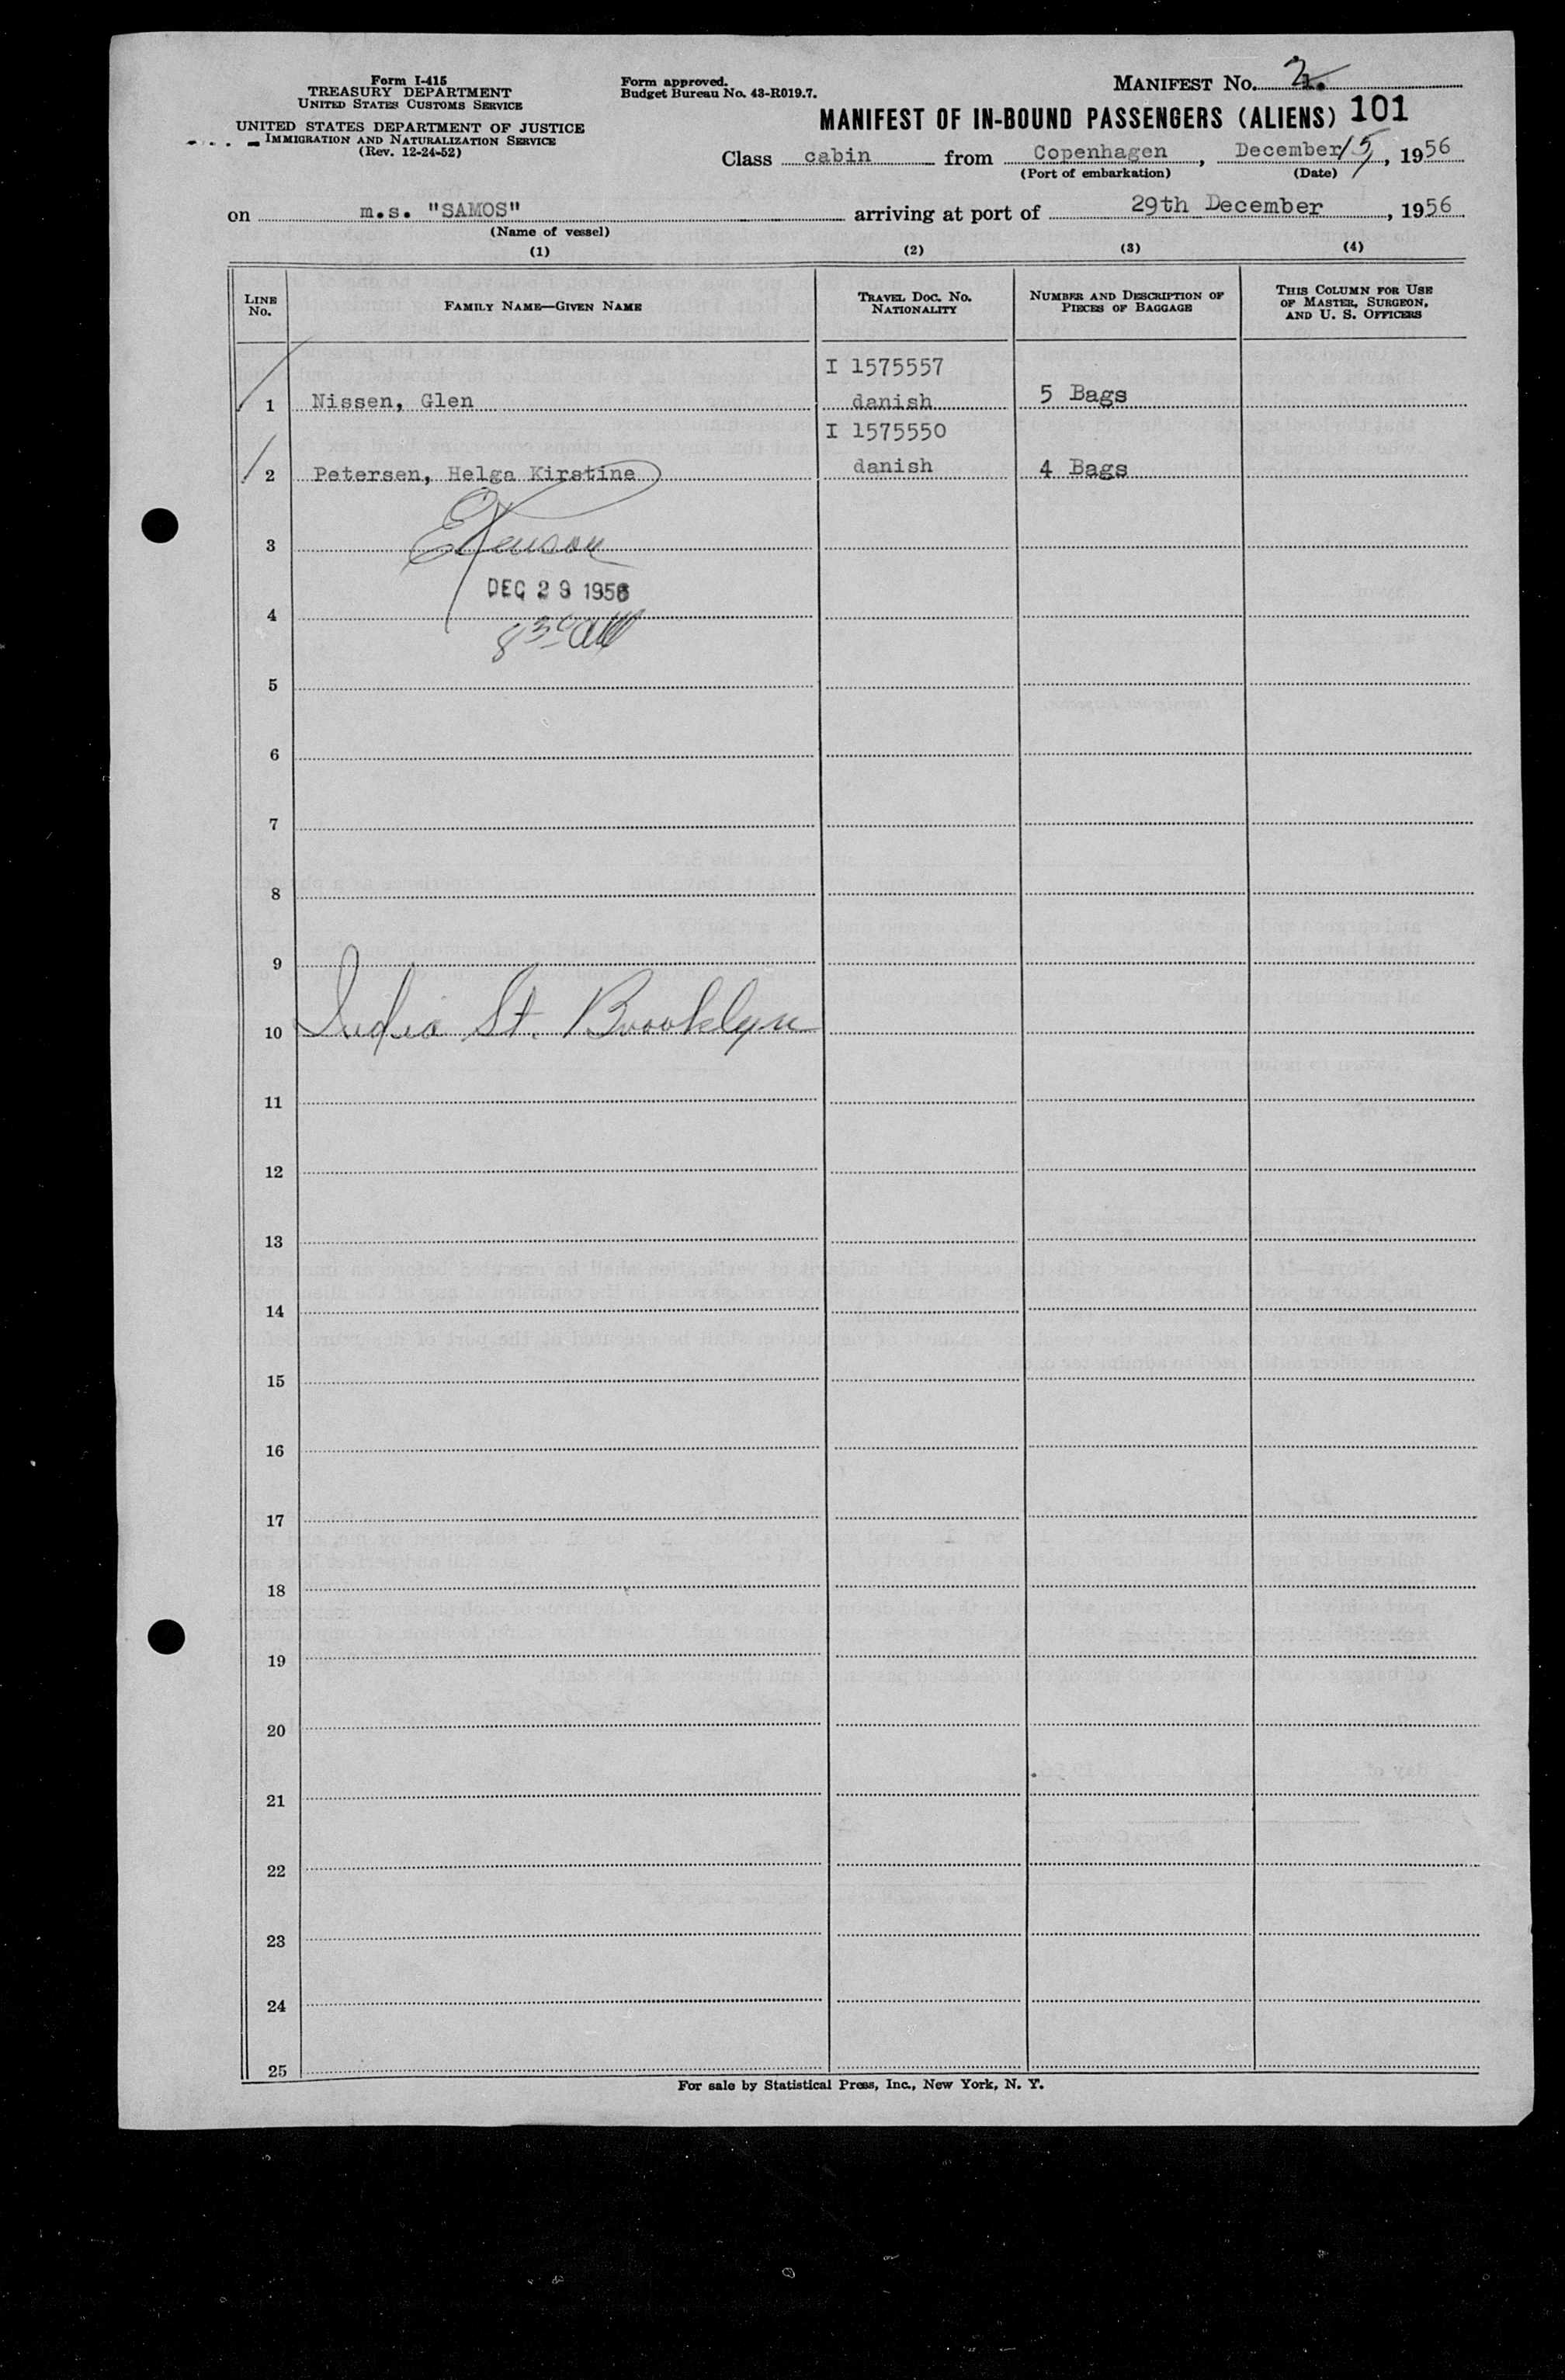 Form I-415
TREASURY DEPARTMENT
UNITED STATES CUSTOMS SERVICE
UNITED STATES DEPARTMENT OF JUSTICE
IMMIGRATION AND NATURALIZATION SERVICE
(Rev. 12-24-52)
Form approved.
Budget Bureau No. 43-R019.7.
MANIFEST No. 2
MANIFEST OF IN-BOUND PASSENGERS (ALIENS) 101
Class cabin from Copenhagen, December 15, 1956
(Port of embarkation) (Date)
on m.s. "SAMOS" arriving at port of 29th December, 1956
(Name of vessel)
(1) (2) (3) (4)
LINE No. FAMILY NAME—GIVEN NAME TRAVEL DOC. NO. NATIONALITY NUMBER AND DESCRIPTION OF PIECES OF BAGGAGE THIS COLUMN FOR USE OF MASTER, SURGEON, AND U. S. OFFICERS
I 1575557
1 Nissen, Glen danish 5 Bags
I 1575550
2 Petersen, Helga Kirstine danish 4 Bags
3
DEC 29 1956
4
5
6
7
8
9
10 India St. Brooklyn
11
12
13
14
15
16
17
18
19
20
21
22
23
24
25
For sale by Statistical Press, Inc., New York, N. Y.